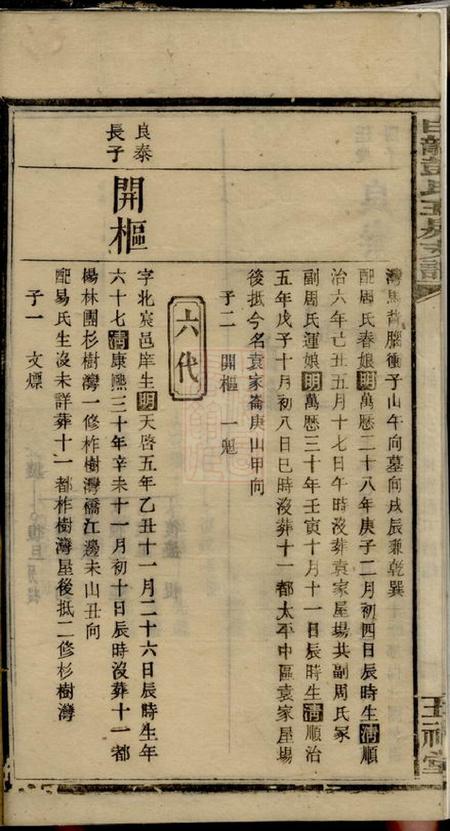 灣馬背腦衝子山午向墓向戌辰兼乾巽
配周氏春娘明萬曆二十八年庚子二月初四日辰時生清順
治六年己丑五月十七日午時沒葬袁家屋場共副周氏冢
副周氏運娘明萬曆三十年壬寅十月十一日辰時生清順治
五年戊子十月初八日巳時沒葬十一都太平中區袁家屋場
後抵今名袁家崙庚山甲向
子二 開樞 一魁
六代
良泰
長子
開樞
字北宸邑庠生明天啓五年乙丑十一月二十六日辰時生年
六十七清康熙三十年辛未十一月初十日辰時沒葬十一都
楊林團杉樹灣一修柞樹灣橋江邊未山丑向
配易氏生沒未詳葬十一都柞樹灣屋後抵二修杉樹灣
子一 文煙